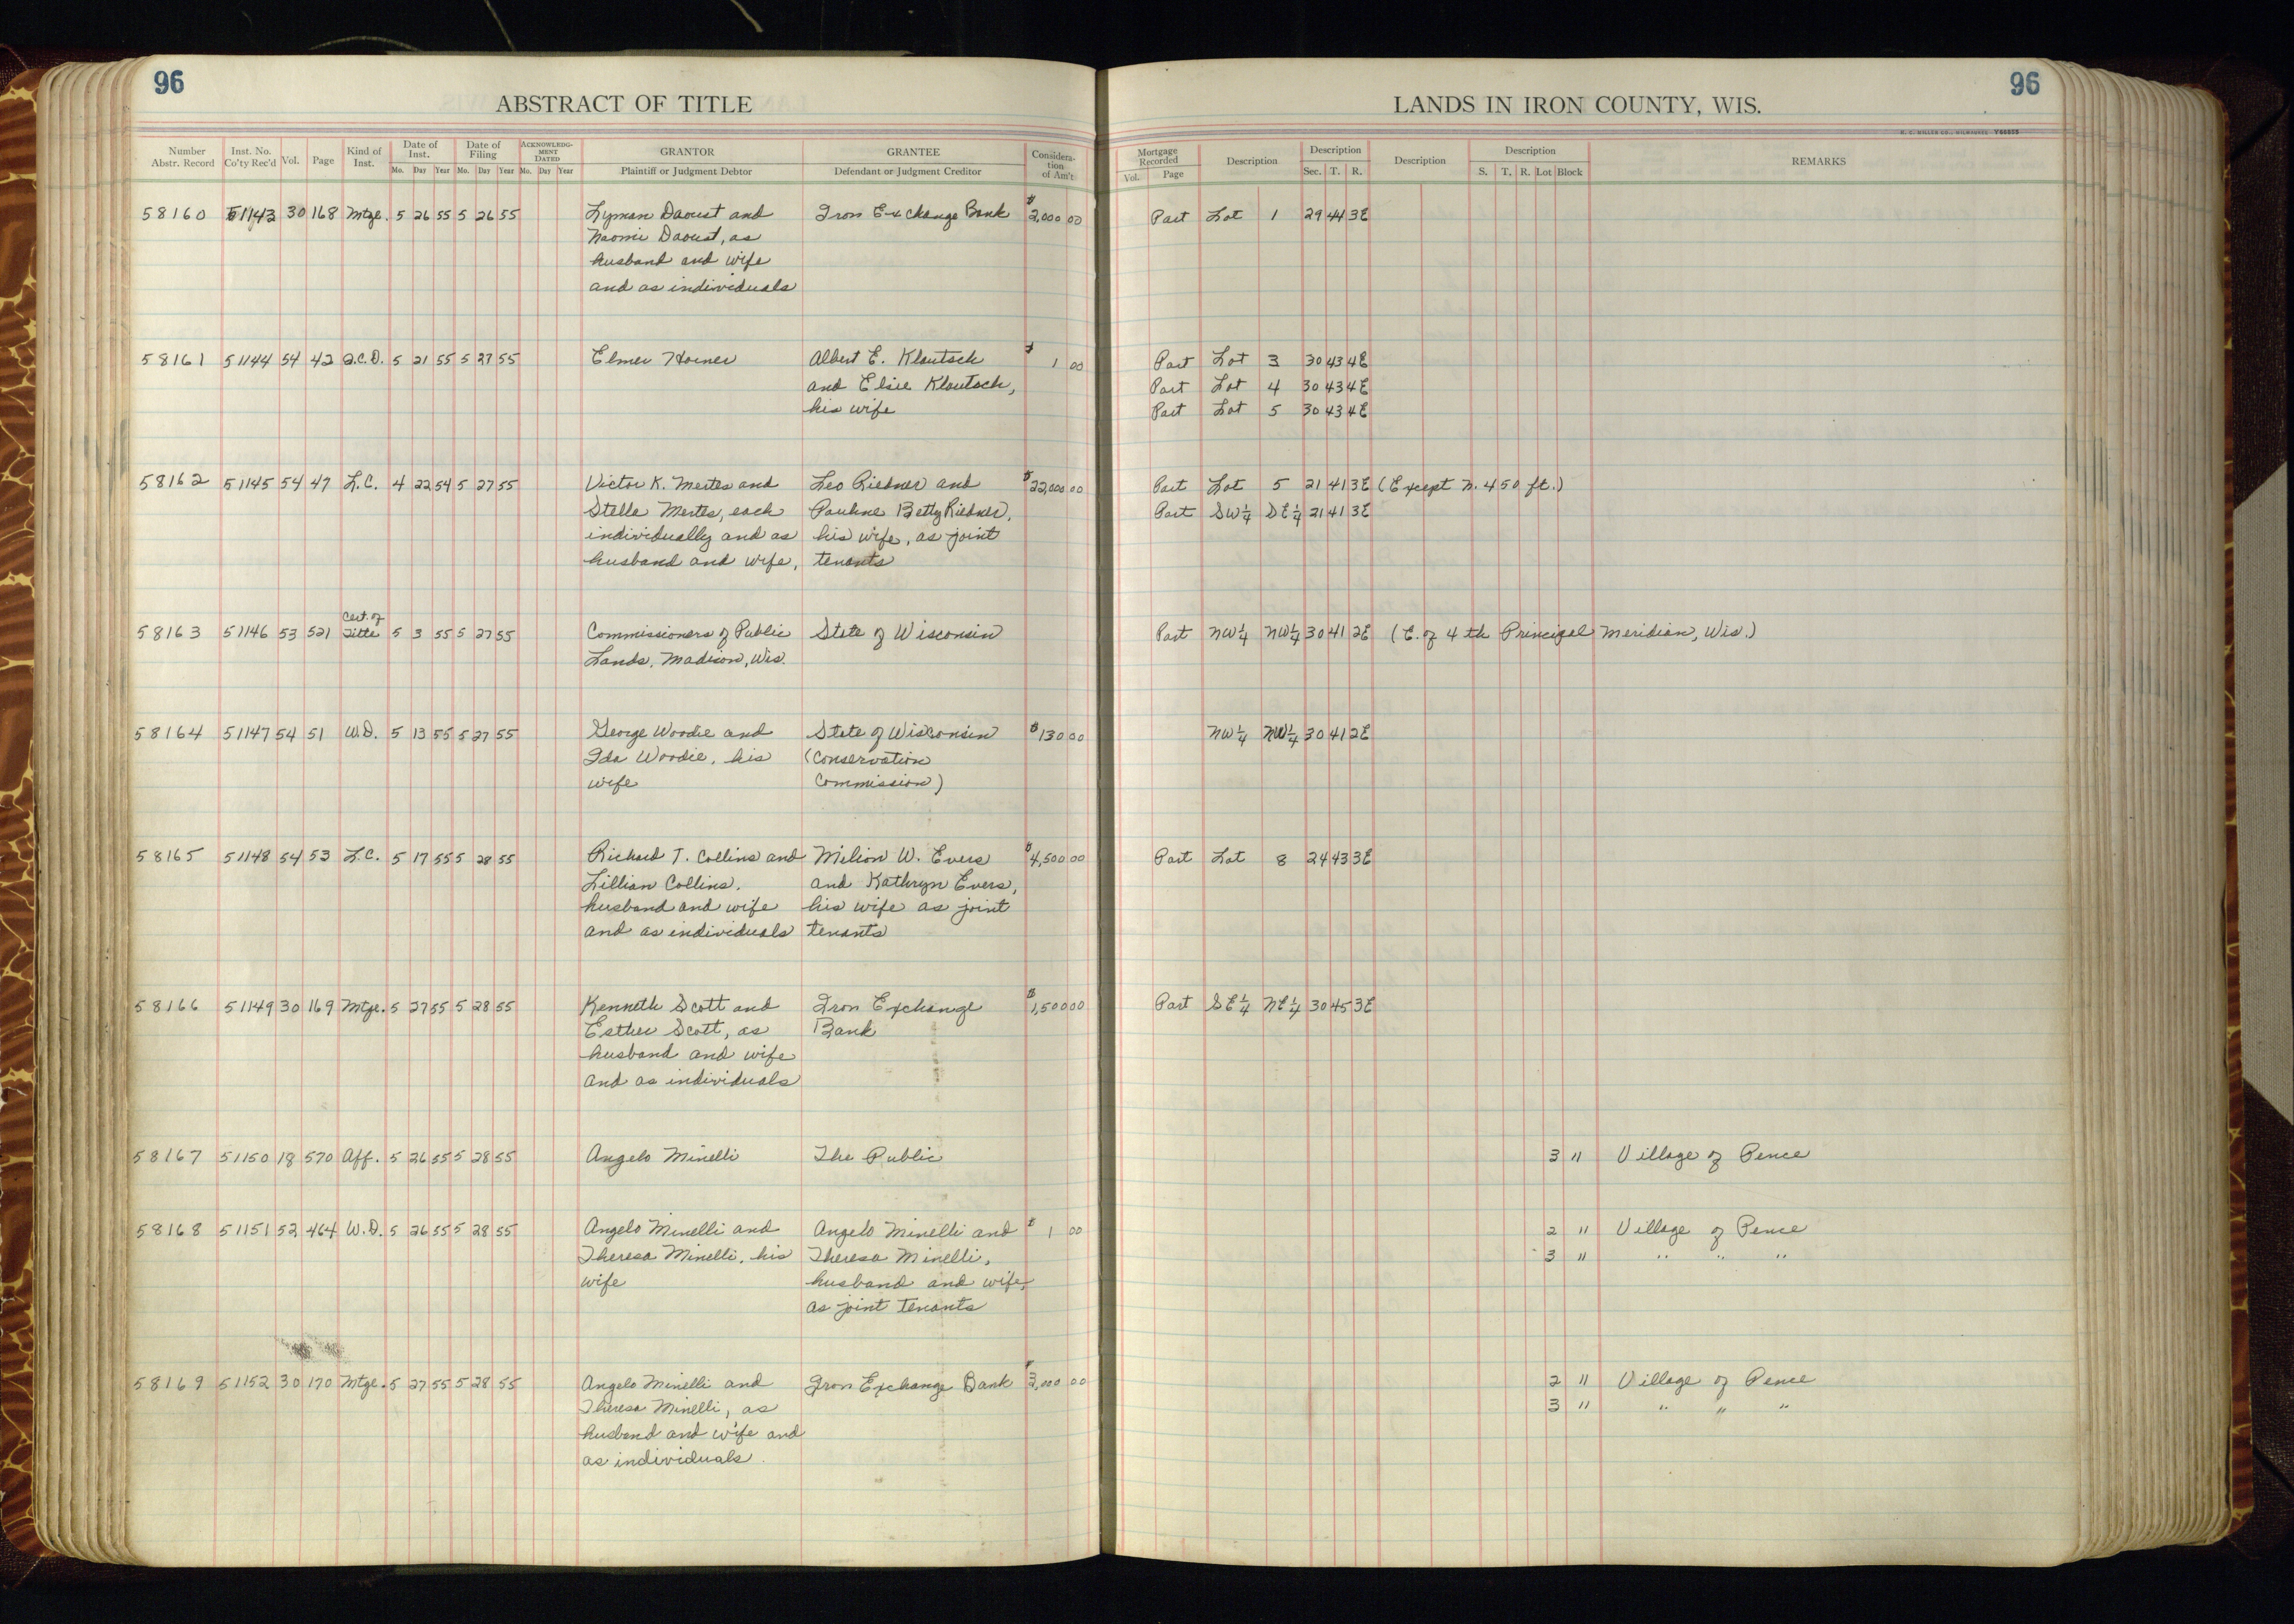 96
ABSTRACT OF TITLE
Number Abstr. Record Inst. No. Co'ty Rec'd Vol. Page Kind of Inst. Date of Inst. Mo. Day Year Date of Filing Mo. Day Year ACKNOWLEDGMENT DATED Mo. Day Year GRANTOR Plaintiff or Judgment Debtor GRANTEE Defendant or Judgment Creditor Consideration of Am't
58160 51143 30 168 Mtge. 5 26 55 5 26 55 Lyman Daoust and Iron Exchange Bank $2,000 00
Naomi Daoust, as
husband and wife
and as individuals
58161 51144 54 42 Q.C.D. 5 21 55 5 27 55 Elmer Hoines Albert E. Kloutsch $ 1 00
and Elsie Kloutsch,
his wife
58162 51145 54 47 L.C. 4 22 54 5 27 55 Victor K. Mertes and Leo Riedner and $22,000 00
Stella Mertes, each Pauline Betty Riedner,
individually and as his wife, as joint
husband and wife, tenants
58163 51146 53 521 Cert. of Title 5 3 55 5 27 55 Commissioners of Public State of Wisconsin
Lands, Madison, Wis.
58164 51147 54 51 W.D. 5 13 55 5 27 55 George Woodie and State of Wisconsin $130 00
Ida Woodie, his (Conservation
wife Commission)
58165 51148 54 53 L.C. 5 17 55 5 28 55 Richard T. Collins and Milion W. Evers $4,500 00
Lillian Collins, and Kathryn Evers,
husband and wife his wife as joint
and as individuals tenants
58166 51149 30 169 Mtge. 5 27 55 5 28 55 Kenneth Scott and Iron Exchange $1,500 00
Esther Scott, as Bank
husband and wife
and as individuals
58167 51150 18 570 Aff. 5 26 55 5 28 55 Angelo Minelli The Public
58168 51151 52 464 W.D. 5 26 55 5 28 55 Angelo Minelli and Angelo Minelli and $ 1 00
Theresa Minelli, his Theresa Minelli,
wife husband and wife,
as joint tenants
58169 51152 30 170 Mtge. 5 27 55 5 28 55 Angelo Minelli and Iron Exchange Bank $ 00
Theresa Minelli, as
husband and wife and
as individuals
96
LANDS IN IRON COUNTY, WIS.
H. C. MILLER CO., MILWAUKEE
Mortgage Recorded Vol. Page Description Description Sec. T. R. Description Description S. T. R. Lot Block REMARKS
Part Lot 1 29 44 3E
Part Lot 3 30 43 4E
Part Lot 4 30 43 4E
Part Lot 5 30 43 4E
Part Lot 5 21 41 3E (Except N. 450 ft.)
Part SW¼ SE¼ 21 41 3E
Part NW¼ NW¼ 30 41 2E (E. of 4th Principal Meridian, Wis.)
NW¼ NW¼ 30 41 2E
Part Lot 8 24 43 3E
Part SE¼ NE¼ 30 45 3E
3 11 Village of Pence
2 11 Village of Pence
3 11 " " "
2 11 Village of Pence
3 11 " " "